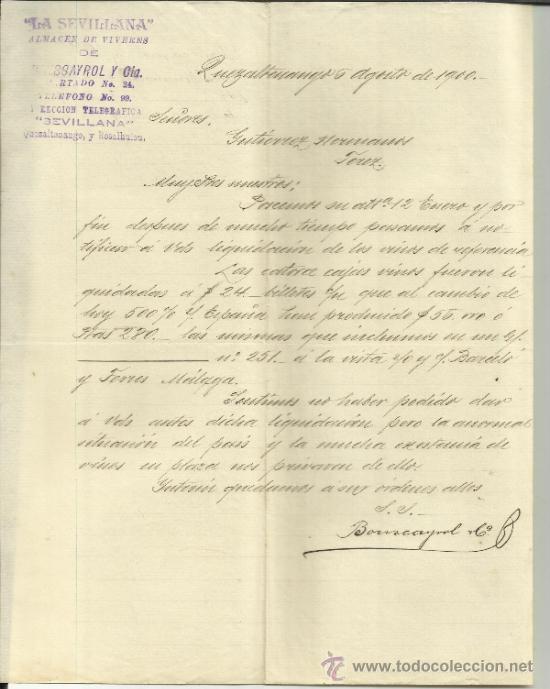 "LA SEVILLANA"
ALMACEN DE VIVERES
DE
SSAYROL Y Cia.
ARTADO No. 24.
TELEFONO No. 99.
RECCION TELEGRAFICA
"SEVILLANA"
Quezaltenango, y Retalhuleu.
Quezaltenango 5 Agosto de 1900.-
Señores.
Gutierrez Hermanos
Jerez.
Muy Sres nuestros;
Poseemos su att. 12 Enero y por
fin despues de mucho tiempo pasamos á no-
tificar á Vds liquidación de los vinos de referencia
Las catorce cajas vinos fueron li
quidadas á $ 24.- billetes c/u que al cambio de
hoy 500% s/ España han producido $ 56, oro ó
Ptas 280.- las mismas que incluimos en un
nº 251.- á la vista y Barceló
y Torres Málaga.
Sentimos no haber podido dar
á Vds antes dicha liquidación pero la anormal
situación del país y la mucha existencia de
vinos en plaza nos privaron de ello.
quedamos á sus ordenes
S. S.
todocoleccion
www.todocoleccion.net